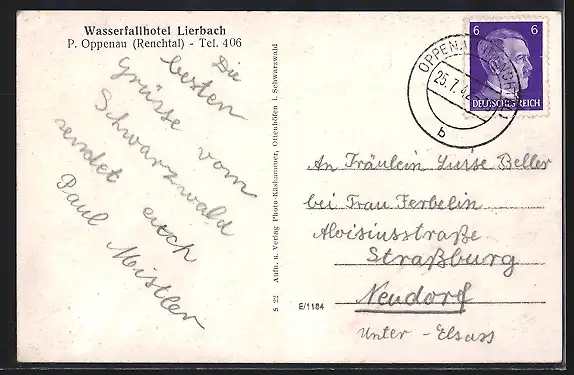 Wasserfallhotel Lierbach
P. Oppenau (Renchtal) - Tel. 406
Die
besten
Grüsse vom
Schwarzwald
sendet euch
Paul Mistler
S 22 Aufn. u. Verlag Photo-Käshammer, Ottenhöfen i. Schwarzwald
E/1184
6 6
DEUTSCHES REICH
OPPENAU
25.7.42
b
An Fräulein Luise Beller
bei Frau Ferbelin
Aloisiusstraße
Straßburg
Neudorf
Unter-Elsass